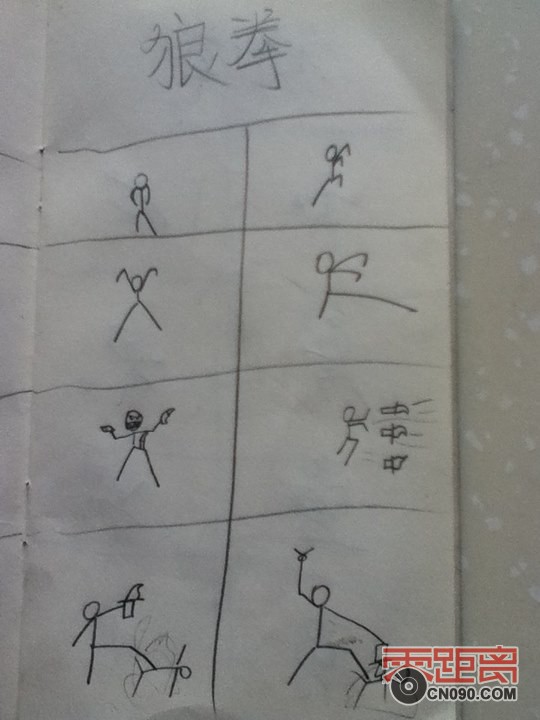 狼拳
零距离
CN090.COM